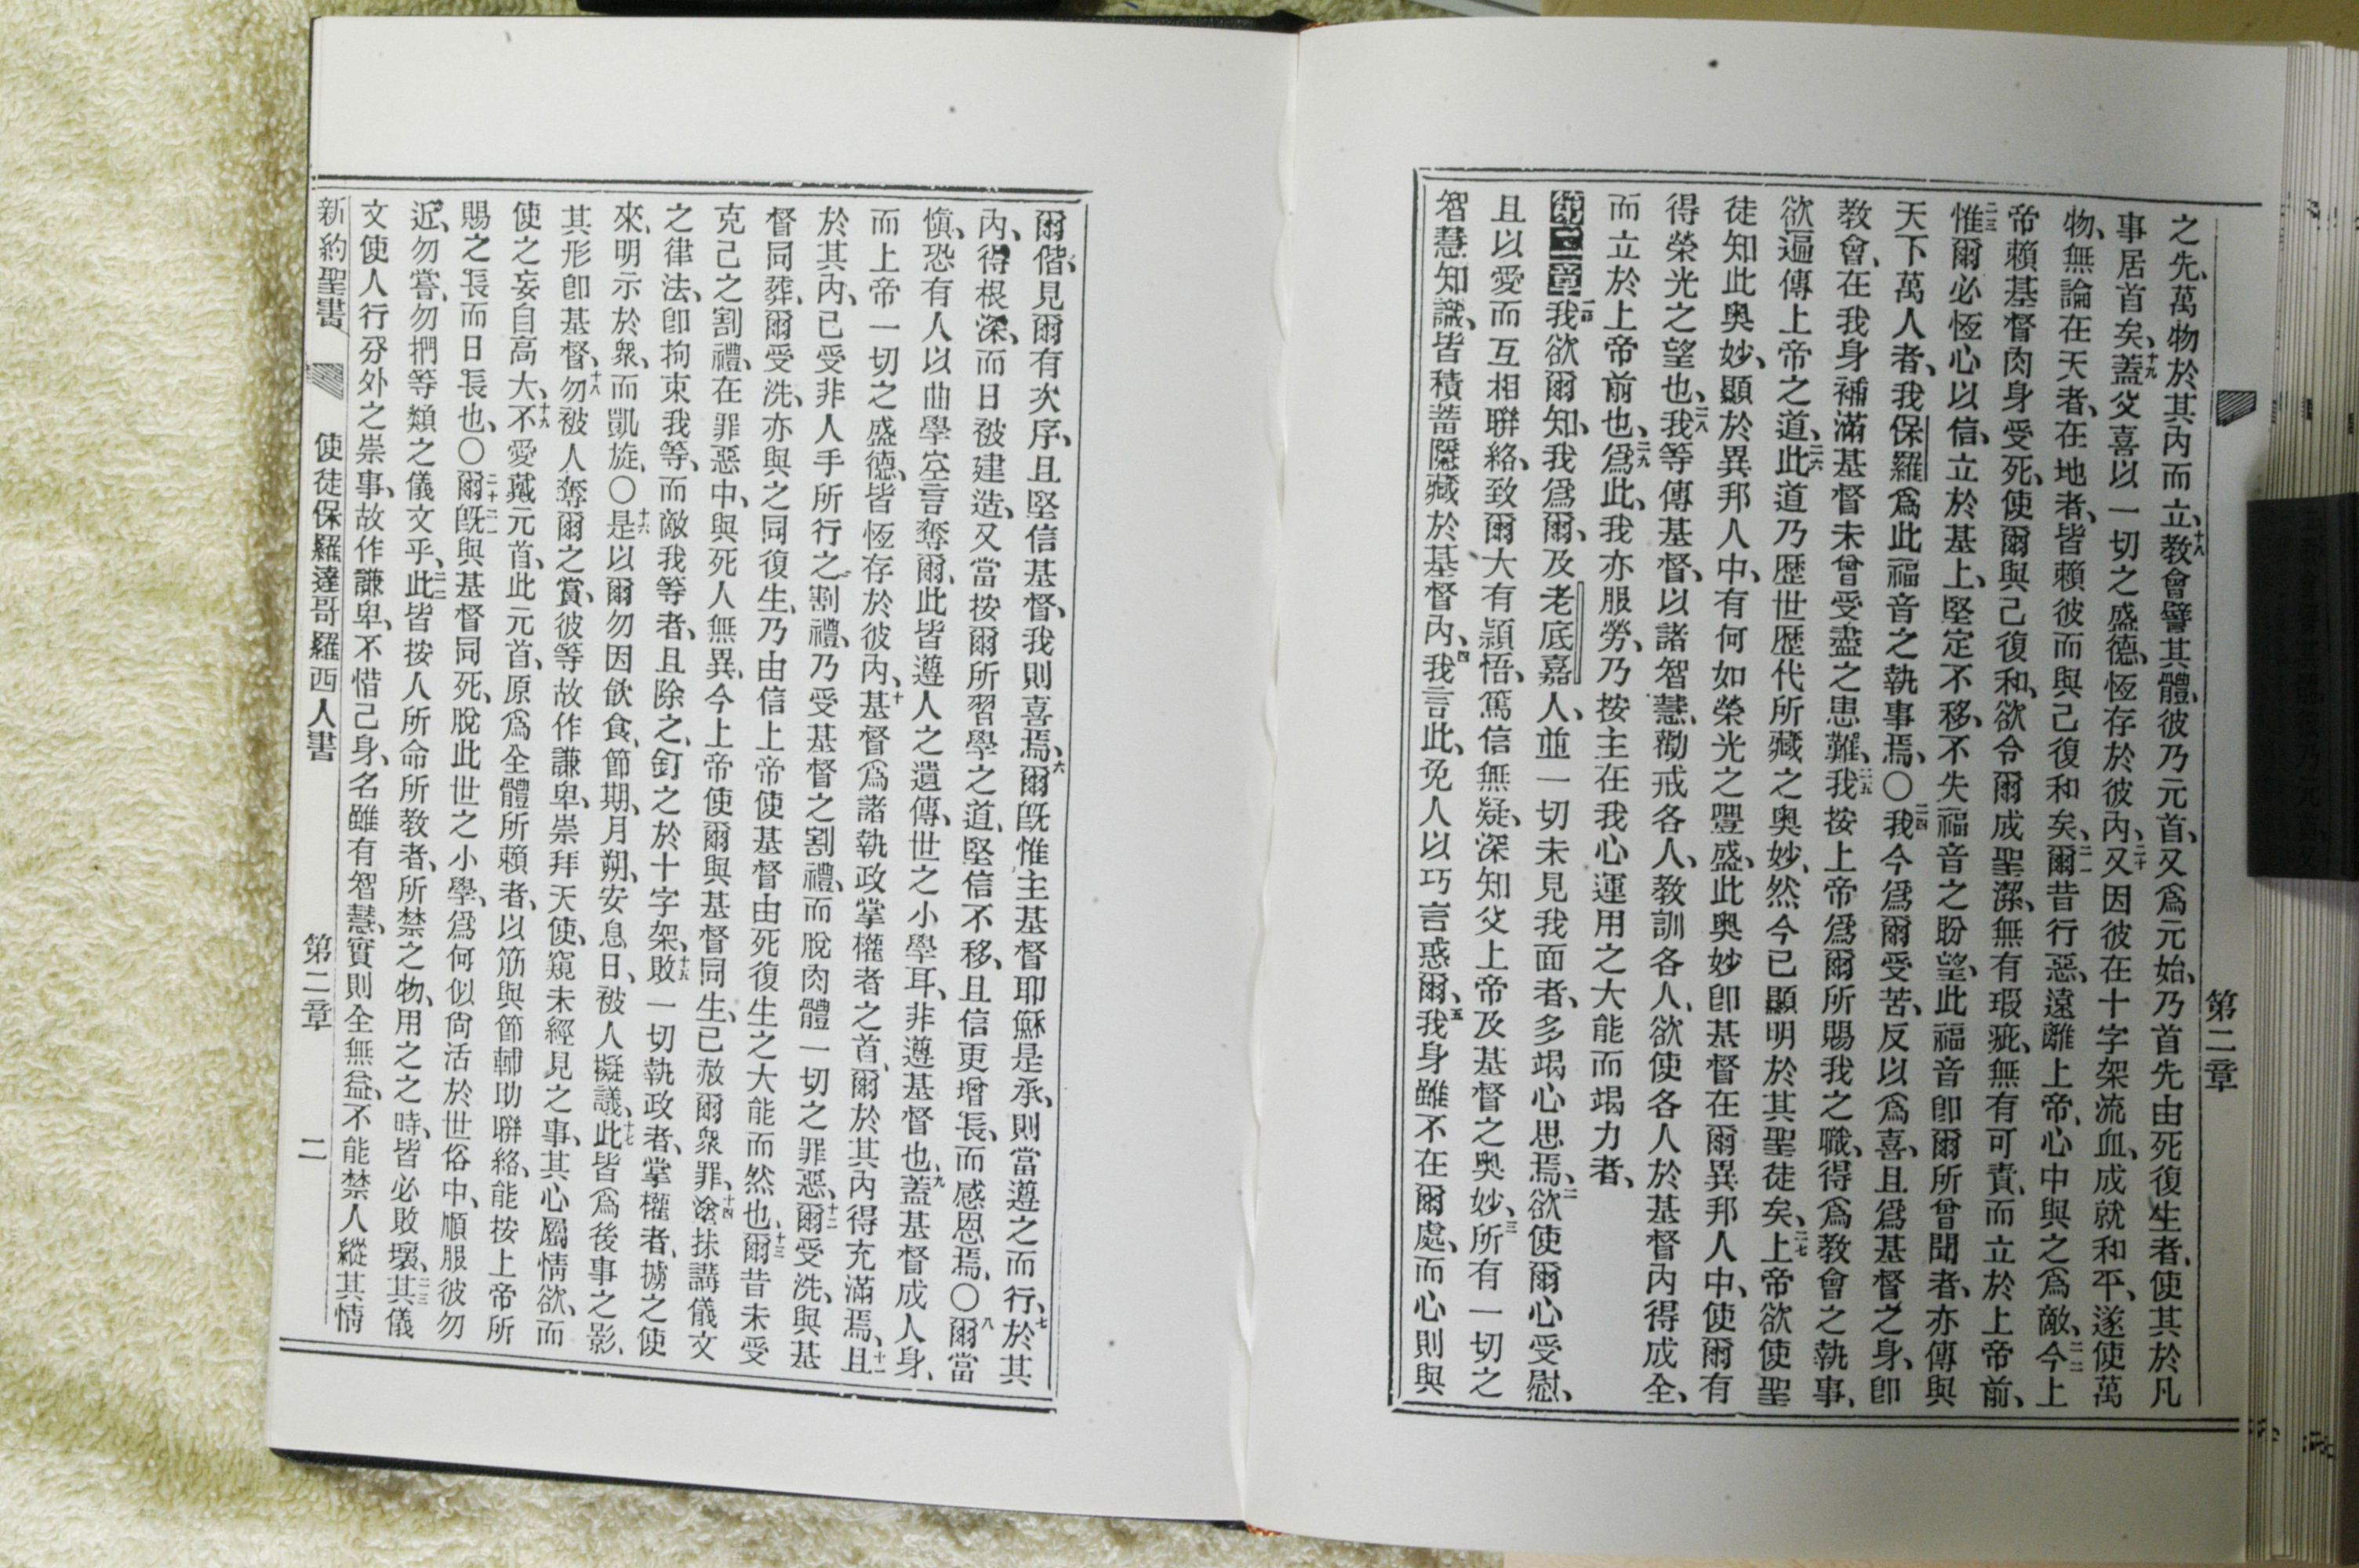 第二章
之先、萬物於其內而立、十八教會譬其體、彼乃元首、又爲元始、乃首先由死復生者、使其於凡
事居首矣、十九蓋父喜以一切之盛德、恆存於彼內、二十又因彼在十字架流血、成就和平、遂使萬
物、無論在天者、在地者、皆賴彼而與己復和矣、二一爾昔行惡、遠離上帝、心中與之爲敵、二二今上
帝賴基督肉身受死、使爾與己復和、欲令爾成聖潔、無有瑕疵、無有可責、而立於上帝前、
二三惟爾必恆心以信、立於基上、堅定不移、不失福音之盼望、此福音卽爾所曾聞者、亦傳與
天下萬人者、我保羅爲此福音之執事焉、〇二四我今爲爾受苦、反以爲喜、且爲基督之身、卽
教會、在我身補滿基督未曾受盡之患難、二五我按上帝爲爾所賜我之職、得爲教會之執事、
欲遍傳上帝之道、二六此道乃歷世歷代所藏之奧妙、然今已顯明於其聖徒矣、二七上帝欲使聖
徒知此奧妙、顯於異邦人中、有何如榮光之豐盛、此奧妙卽基督在爾異邦人中、使爾有
得榮光之望也、二八我等傳基督、以諸智慧、勸戒各人、教訓各人、欲使各人於基督內得成全、
而立於上帝前也、二九爲此、我亦服勞、乃按主在我心運用之大能而竭力者、
第二章一我欲爾知、我爲爾、及老底嘉人、並一切未見我面者、多竭心思焉、二欲使爾心受慰、
且以愛而互相聯絡、致爾大有穎悟、篤信無疑、深知父上帝及基督之奧妙、三所有一切之
智慧知識、皆積蓄隱藏於基督內、四我言此、免人以巧言惑爾、五我身雖不在爾處、而心則與
爾偕、見爾有次序、且堅信基督、我則喜焉、六爾旣惟主基督耶穌是承、則當遵之而行、七於其
內、得根深、而日被建造、又當按爾所習學之道、堅信不移、且信更增長、而感恩焉、〇八爾當
愼、恐有人以曲學空言奪爾、此皆遵人之遺傳、世之小學耳、非遵基督也、九蓋基督成人身、
而上帝一切之盛德、皆恆存於彼內、十基督爲諸執政掌權者之首、爾於其內得充滿焉、十一且
於其內、已受非人手所行之割禮、乃受基督之割禮、而脫肉體一切之罪惡、十二爾受洗、與基
督同葬、爾受洗、亦與之同復生、乃由信上帝使基督由死復生之大能而然也、十三爾昔未受
克己之割禮、在罪惡中、與死人無異、今上帝使爾與基督同生、已赦爾衆罪、十四塗抹講儀文
之律法、卽拘束我等、而敵我等者、且除之、釘之於十字架、十五敗一切執政者、掌權者、擄之使
來、明示於衆、而凱旋、〇十六是以爾勿因飮食、節期、月朔、安息日、被人擬議、十七此皆爲後事之影、
其形卽基督、十八勿被人奪爾之賞、彼等故作謙卑、崇拜天使、窺未經見之事、其心屬情欲、而
使之妄自高大、十九不愛戴元首、此元首、原爲全體所賴者、以筋與節輔助聯絡、能按上帝所
賜之長而日長也、〇二十爾旣與基督同死、脫此世之小學、爲何似尙活於世俗中、順服彼勿
近、勿嘗、勿捫等類之儀文乎、二二此皆按人所命所教者、所禁之物、用之之時、皆必敗壞、二三其儀
文使人行分外之崇事、故作謙卑、不惜己身、名雖有智慧、實則全無益、不能禁人縱其情
新約聖書 使徒保羅達哥羅西人書 第二章 二